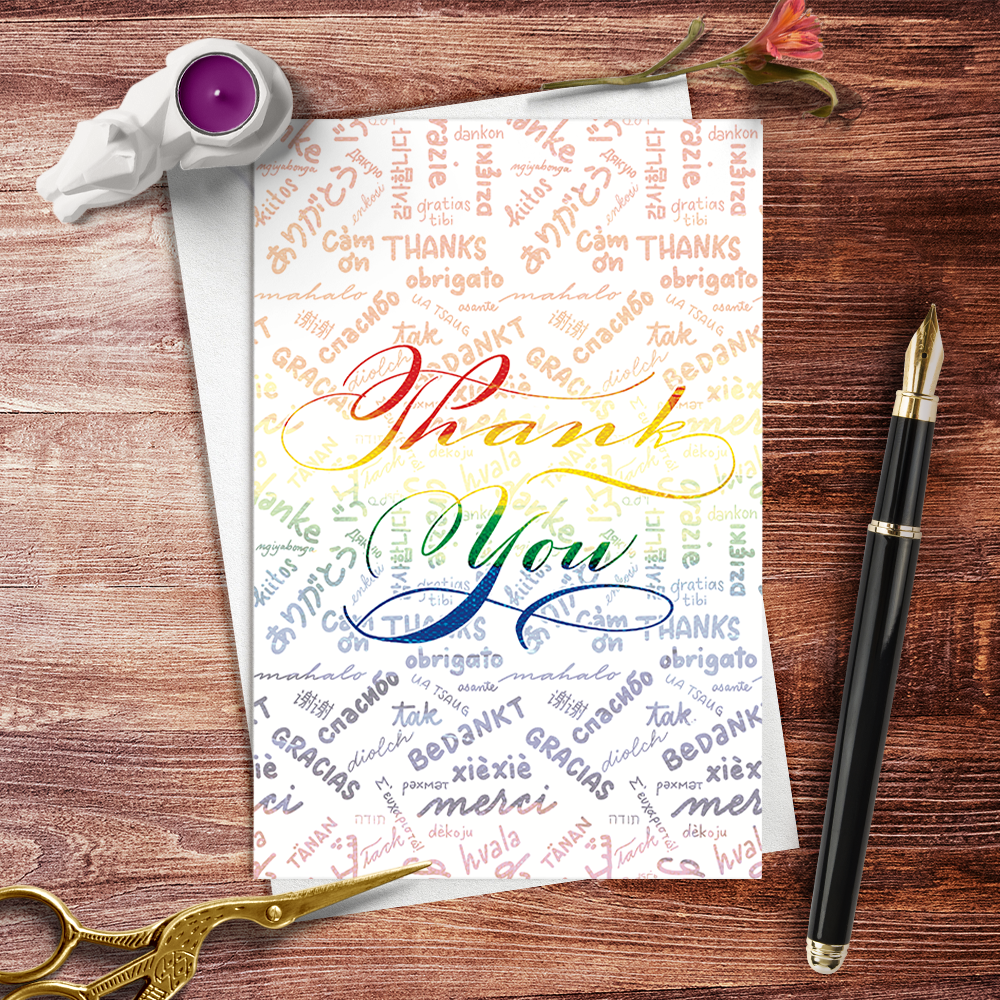 danke
Дякую
감사합니다
grazie
dankon
ngiyabonga
DZIĘKI
kiitos
ありがとう
enkosi
gratias
tibi
Cảm
ơn
THANKS
obrigato
mahalo
谢谢
спасибо
UA TSAUG
asante
tak
BEDANKT
GRACIAS
diolch
xièxiè
рәхмәт
merci
Thank
You
hvala
danke
Дякую
감사합니다
grazie
dankon
ngiyabonga
DZIĘKI
kiitos
ありがとう
enkosi
gratias
tibi
Cảm
ơn
THANKS
obrigato
mahalo
谢谢
спасибо
UA TSAUG
asante
tak
BEDANKT
GRACIAS
diolch
xièxiè
рәхмәт
merci
Σ'ευχαριστώ!
תודה
dèkoju
TÄNAN
hvala